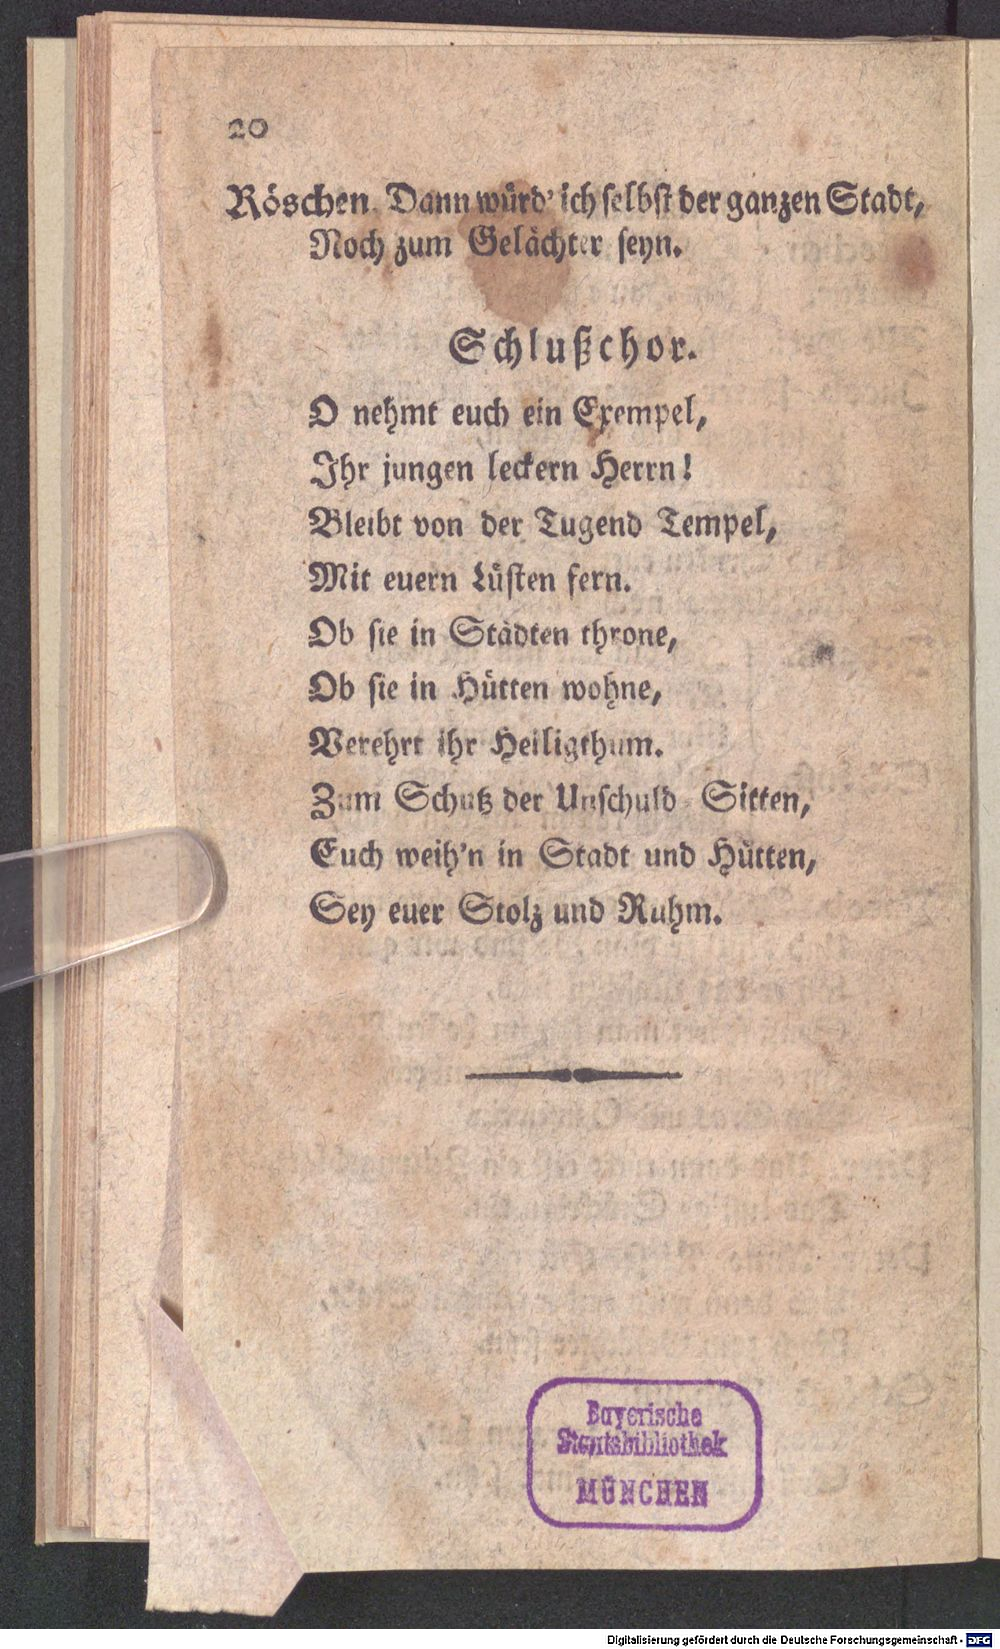 20
Röschen. Dann würd' ich selbst der ganzen Stadt,
Noch zum Gelächter seyn.
Schlußchor.
O nehmt euch ein Exempel,
Ihr jungen leckern Herrn!
Bleibt von der Tugend Tempel,
Mit euern Lüsten fern.
Ob sie in Städten throne,
Ob sie in Hütten wohne,
Verehrt ihr Heiligthum.
Zum Schutz der Unschuld-Sitten,
Euch weih'n in Stadt und Hütten,
Sey euer Stolz und Ruhm.
Bayerische
Staatsbibliothek
MÜNCHEN
Digitalisierung gefördert durch die Deutsche Forschungsgemeinschaft - DFG